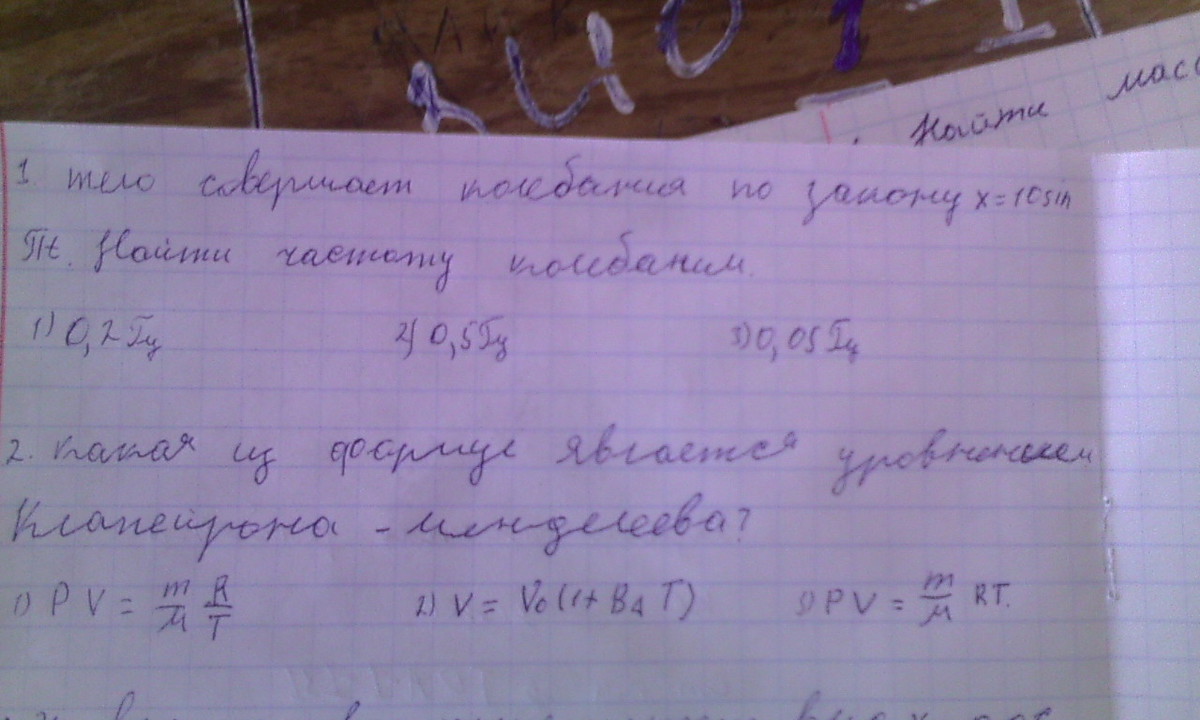 Найти масс
1. тело совершает колебания по закону x = 10 sin
πt. Найти частоту колебании.
1) 0,2 Гц 2) 0,5 Гц 3) 0,05 Гц
2. какая из формул является уровнением
Клапейрона - менделеева?
1) PV = m/μ R/T 2) V = V₀(1+ B₄ T) 3) PV = m/μ RT.